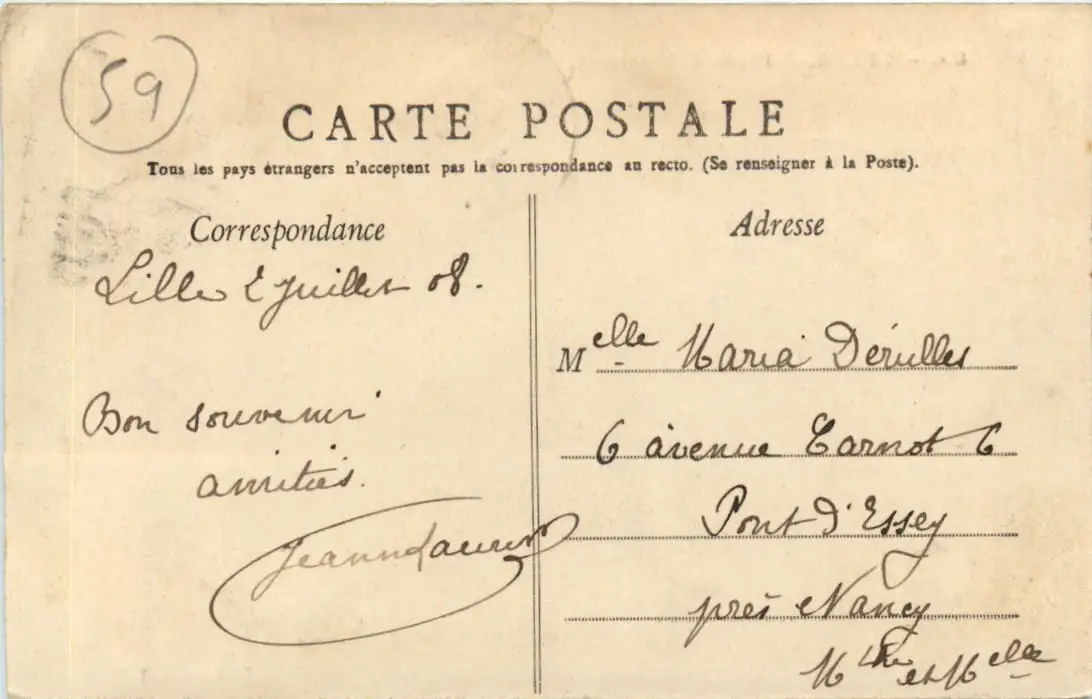 59
CARTE POSTALE
Tous les pays étrangers n'acceptent pas la correspondance au recto. (Se renseigner à la Poste).
Correspondance
Adresse
Lille 2 Juillet 08.
Bon souvenir
amitiés.
Jeanne
Melle Maria Dérulles
6 avenue Carnot 6
Pont d'Essey
près Nancy
Mthe et Melle